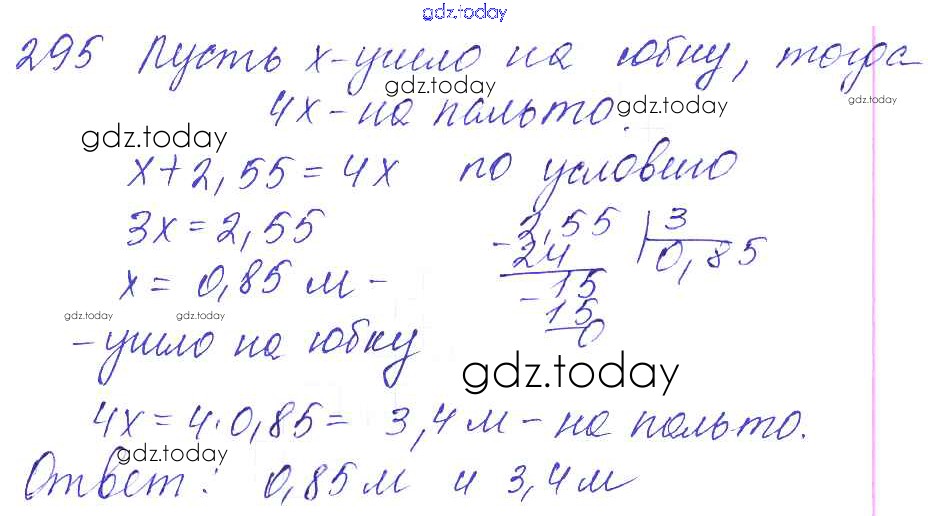 gdz.today
295 Пусть x - ушло на юбку, тогда
gdz.today
4x - на пальто.
gdz.today
gdz.today
gdz.today
x + 2,55 = 4x по условию
3x = 2,55
2,55 | 3
- 24 0,85
x = 0,85 м -
- 15
15
0
gdz.today
gdz.today
- ушло на юбку
gdz.today
4x = 4 · 0,85 = 3,4 м - на пальто.
gdz.today
Ответ: 0,85 м и 3,4 м